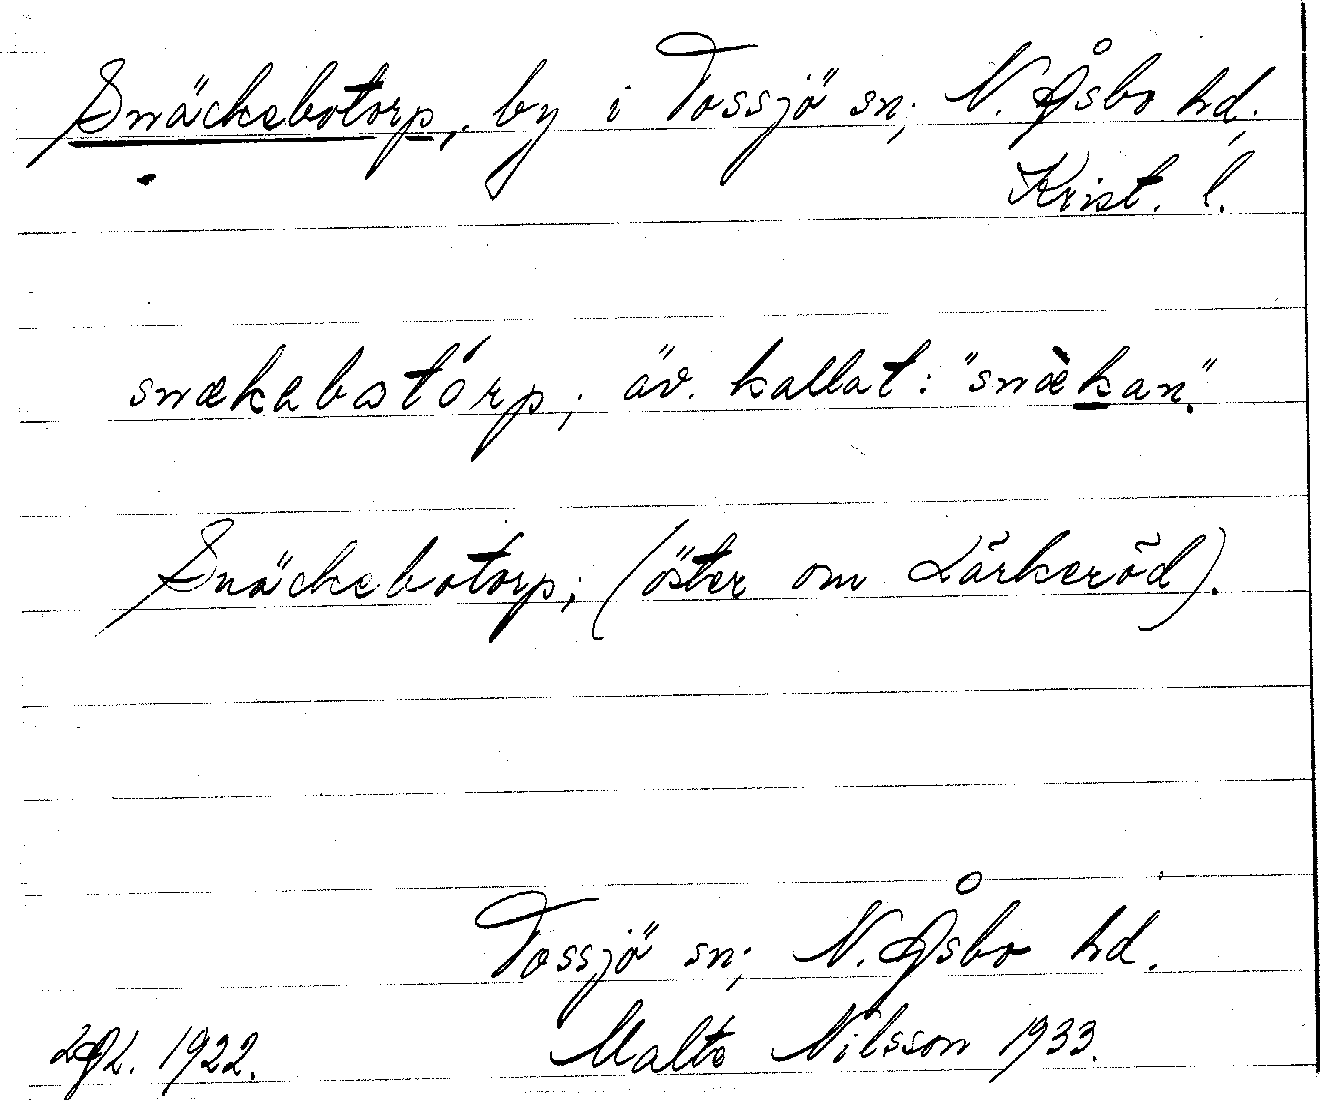 Snäckebotorp, by i Tossjö sn; N. Åsbo hd;
Krist. l.
snækabotórp; äv. kallat: "snæ̀kan".
Snäckebotorp; (öster om Lärkeröd).
Tossjö sn; N. Åsbo hd.
1922. Malte Nilsson 1933.